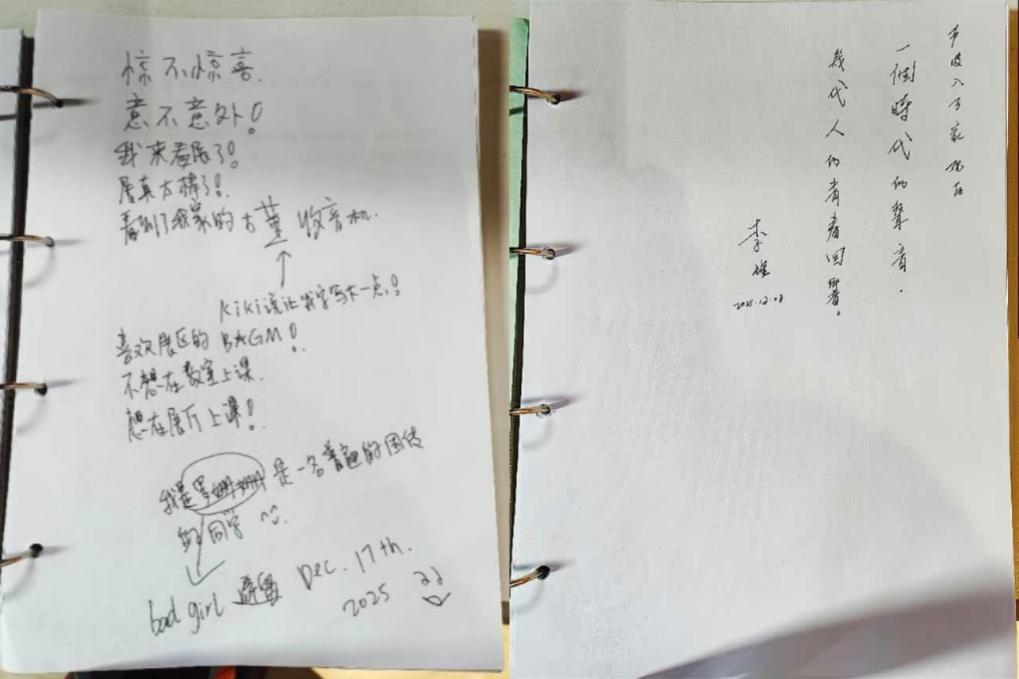 惊不惊喜.
意不意外!
我来看展了!
展真太棒了!.
看到了我家的古董收音机.
kiki说让我字写大一点!
喜欢展区的 BAGM!
不想在教室上课.
想在展厅上课!
我是 是一名普通的国传
的同学 ^^.
bad girl Dec. 17th.
2025
声波入万家
一個時代的聲音.
幾代人的青春回響。
李
2025.12.08